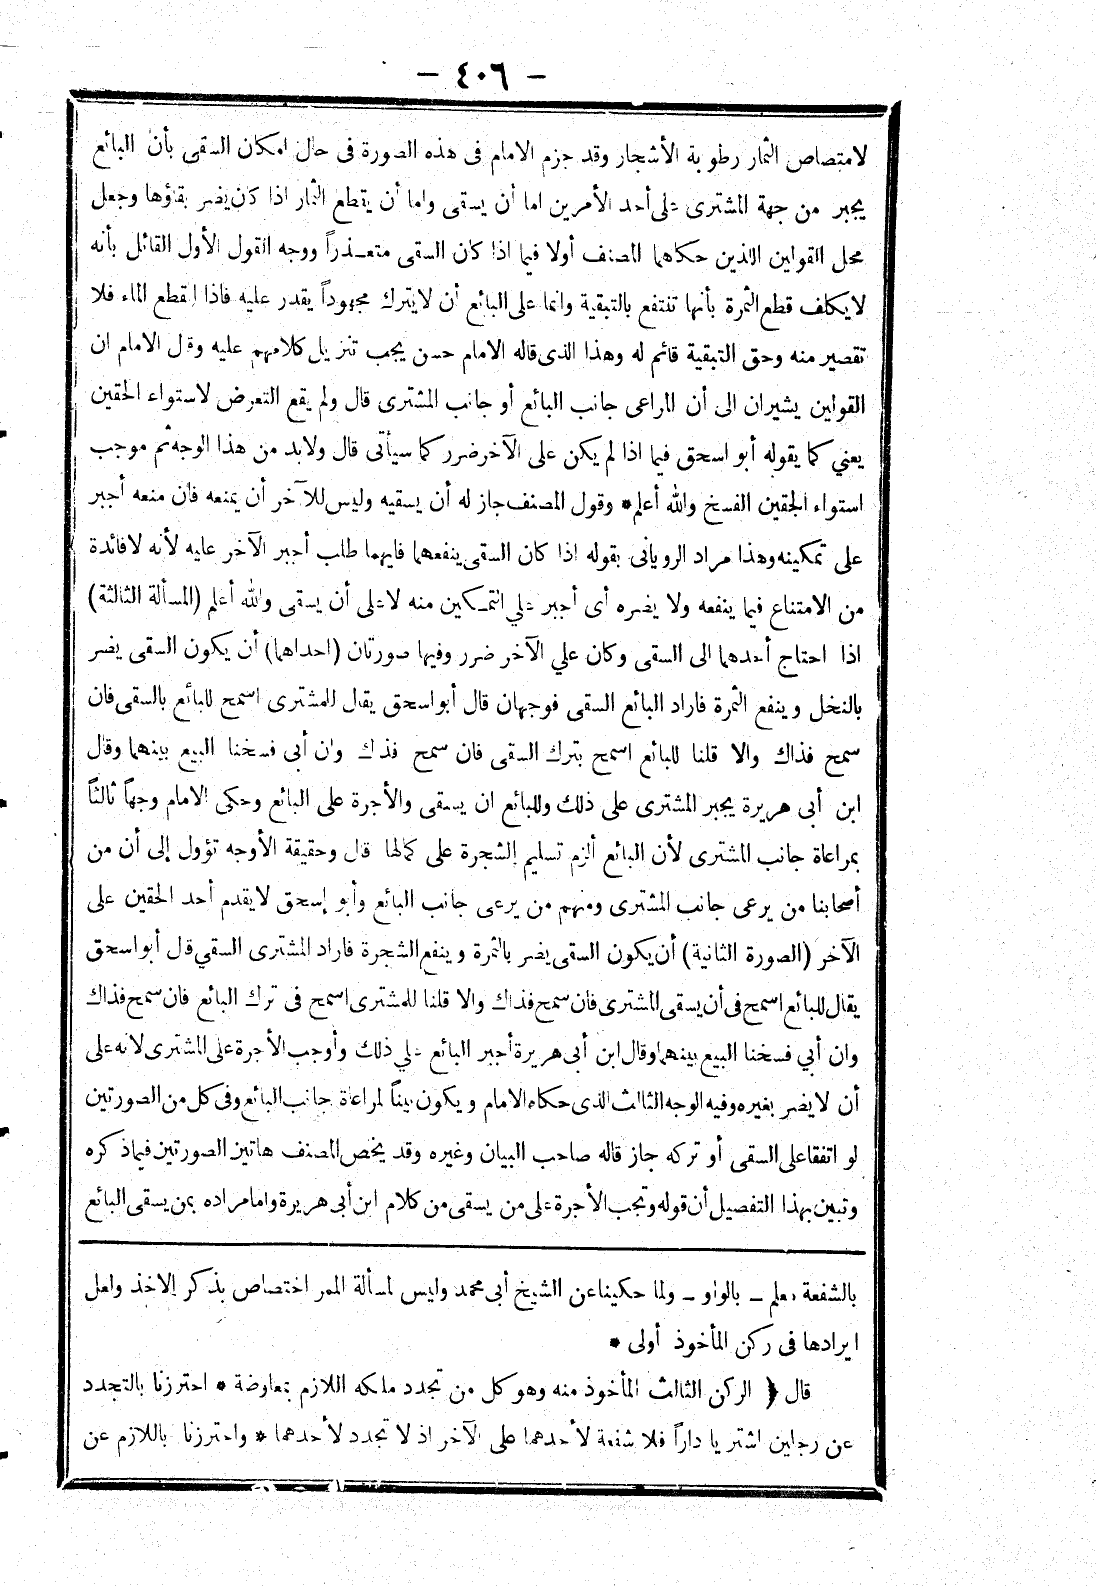 - ٤٠٦ -
لامتصاص الثمار رطوبة الأشجار وقد جزم الامام فى هذه الصورة فى حال امكان السقى بأن البائع
يجبر من جهة المشترى على أحد الأمرين اما أن يسقى واما أن يقطع الثمار اذا كان يضر بقاؤها وجعل
محل القولين اللذين حكاهما المصنف أولا فيما اذا كان السقى متعـذراً ووجه القول الأول القائل بأنه
لا يكلف قطع الثمرة بأنها تنتفع بالتبقية وانما على البائع أن لا يترك مجهوداً يقدر عليه فاذا انقطع الماء فلا
تقصير منه وحق التبقية قائم له وهذا الذى قاله الامام حسن يجب تنزيل كلامهم عليه وقال الامام ان
القولين يشيران الى أن المراعى جانب البائع أو جانب المشترى قال ولم يقع التعرض لاستواء الحقين
يعني كما يقوله أبو اسحق فيما اذا لم يكن على الآخر ضرر كما سيأتى قال ولابد من هذا الوجه ثم موجب
استواء الحقين الفسخ والله أعلم * وقول المصنف جاز له أن يسقيه وليس للآخر أن يمنعه فان منعه أجبر
على تمكينه وهذا مراد الرويانى بقوله اذا كان السقى ينفعهما فايهما طلب أجبر الآخر عليه لأنه لا فائدة
من الامتناع فيما ينفعه ولا يضره أى أجبر علي التمـكين منه لا على أن يسقى والله أعلم (المسألة الثالثة)
اذا احتاج أحدهما الى السقى وكان علي الآخر ضرر وفيها صورتان (احداهما) أن يكون السقى يضر
بالنخل وينفع الثمرة فاراد البائع السقى فوجهان قال أبو اسحق يقال للمشترى اسمح للبائع بالسقى فان
سمح فذاك والا قلنا للبائع اسمح بترك السقى فان سمح فذاك وان أبى فسخنا البيع بينهما وقال
ابن أبى هريرة يجبر المشترى على ذلك وللبائع ان يسقى والأجرة على البائع وحكى الامام وجهاً ثالثاً
بمراعاة جانب المشترى لأن البائع ألزم تسليم الشجرة على كمالها قال وحقيقة الأوجه تؤول إلى أن من
أصحابنا من يرعى جانب المشترى ومنهم من يرعى جانب البائع وأبو إسحق لا يقدم أحد الحقين على
الآخر (الصورة الثانية) أن يكون السقى يضر بالثمرة وينفع الشجرة فاراد المشترى السقي قال أبو اسحق
يقال للبائع اسمح فى أن يسقى المشترى فان سمح فذاك والا قلنا للمشترى اسمح فى ترك البائع فان سمح فذاك
وان أبي فسخنا البيع بينهما وقال ابن أبى هريرة أجبر البائع علي ذلك وأوجب الأجرة على المشترى لانه على
أن لا يضر بغيره وفيه الوجه الثالث الذى حكاه الامام ويكون مبيناً لمراعاة جانب البائع وفى كل من الصورتين
لو اتفقا على السقى أو تركه جاز قاله صاحب البيان وغيره وقد يخص المصنف هاتين الصورتين فيما ذكره
وتبين بهذا التفصيل أن قوله وتجب الأجرة على من يسقى من كلام ابن أبى هريرة واما مراده بمن يسقى البائع
بالشفعة معلم - بالواو - ولما حكينا عن الشيخ أبى محمد وليس لمسألة الممر اختصاص بذكر الاخذ ولعل
ايرادها فى ركن المأخوذ أولى *
قال ﴿ الركن الثالث المأخوذ منه وهو كل من تجدد ملكه اللازم بمعاوضة * احترزنا بالتجدد
عن رجلين اشتريا داراً فلا شفعة لأحدهما على الآخر اذ لا تجدد لأحدهما * واحترزنا باللازم عن